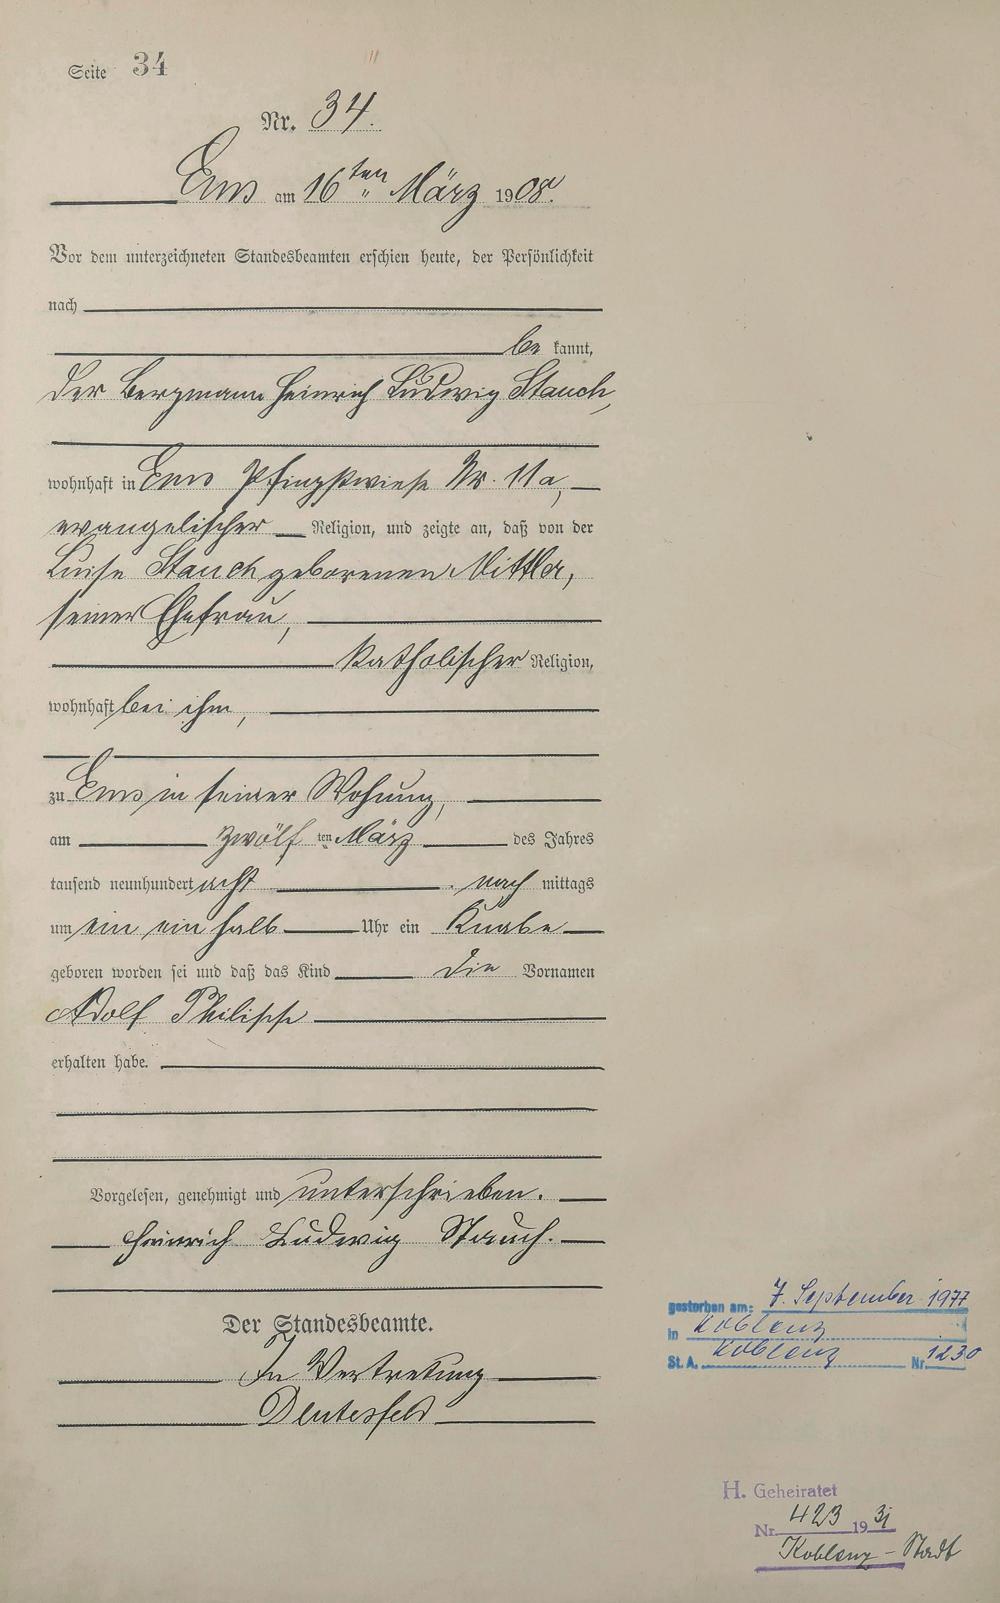 Seite 34
Nr. 34.
Ems am 16ten März 1908.
Vor dem unterzeichneten Standesbeamten erschien heute, der Persönlichkeit
nach
be kannt,
der Bergmann Heinrich Ludwig Stauch,
wohnhaft in Ems Pfingstwiese Nr. 11a,
evangelischer Religion, und zeigte an, daß von der
Luise Stauch geborenen Mittler,
seiner Ehefrau,
katholischer Religion,
wohnhaft bei ihm,
zu Ems in seiner Wohung,
am zwölf ten März des Jahres
tausend neunhundert acht nach mittags
um ein ein halb Uhr ein Knabe
geboren worden sei und daß das Kind die Vornamen
Adolf Philipp
erhalten habe.
Vorgelesen, genehmigt und unterschrieben.
Heinrich Ludwig Stauch.
Der Standesbeamte.
In Vertretung
gestorben am: 7. September 1977
in Koblenz
St. A. Koblenz Nr. 1230
H. Geheiratet
Nr. 423 1931
Koblenz - Stadt